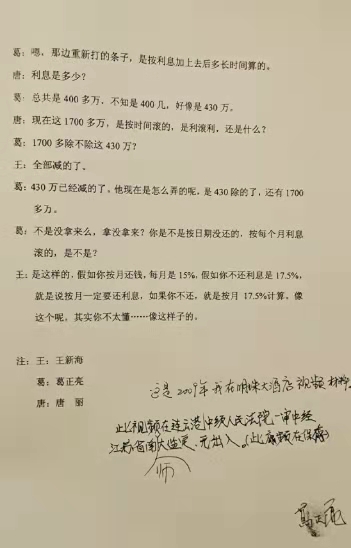 葛：嗯，那边重新打的条子，是按利息加上去后多长时间算的。
唐：利息是多少？
葛：总共是 400 多万，不知是 400 几，好像是 430 万。
唐：现在这 1700 多万，是按时间滚的，是利滚利，还是什么？
葛：1700 多除不除这 430 万？
王：全部减的了。
葛：430 万已经减的了，他现在是怎么弄的呢，是 430 除的了，还有 1700
多万。
葛：不是没拿来么，拿没拿来？你是不是按日期没还的，按每个月利息
滚的，是不是？
王：是这样的，假如你按月还钱，每月是 15%，假如你不还利息是 17.5%，
就是说按月一定要还利息，如果你不还，就是按月 17.5%计算，像
这个呢，其实你不太懂……像这样子的。
注：王：王新海
葛：葛正亮
唐：唐　丽
这是2009年我在明珠大酒店视频材料
此视频在连云港中级人民法院一审中经
江苏省南大监定，无出入。(此原频在保存)
师